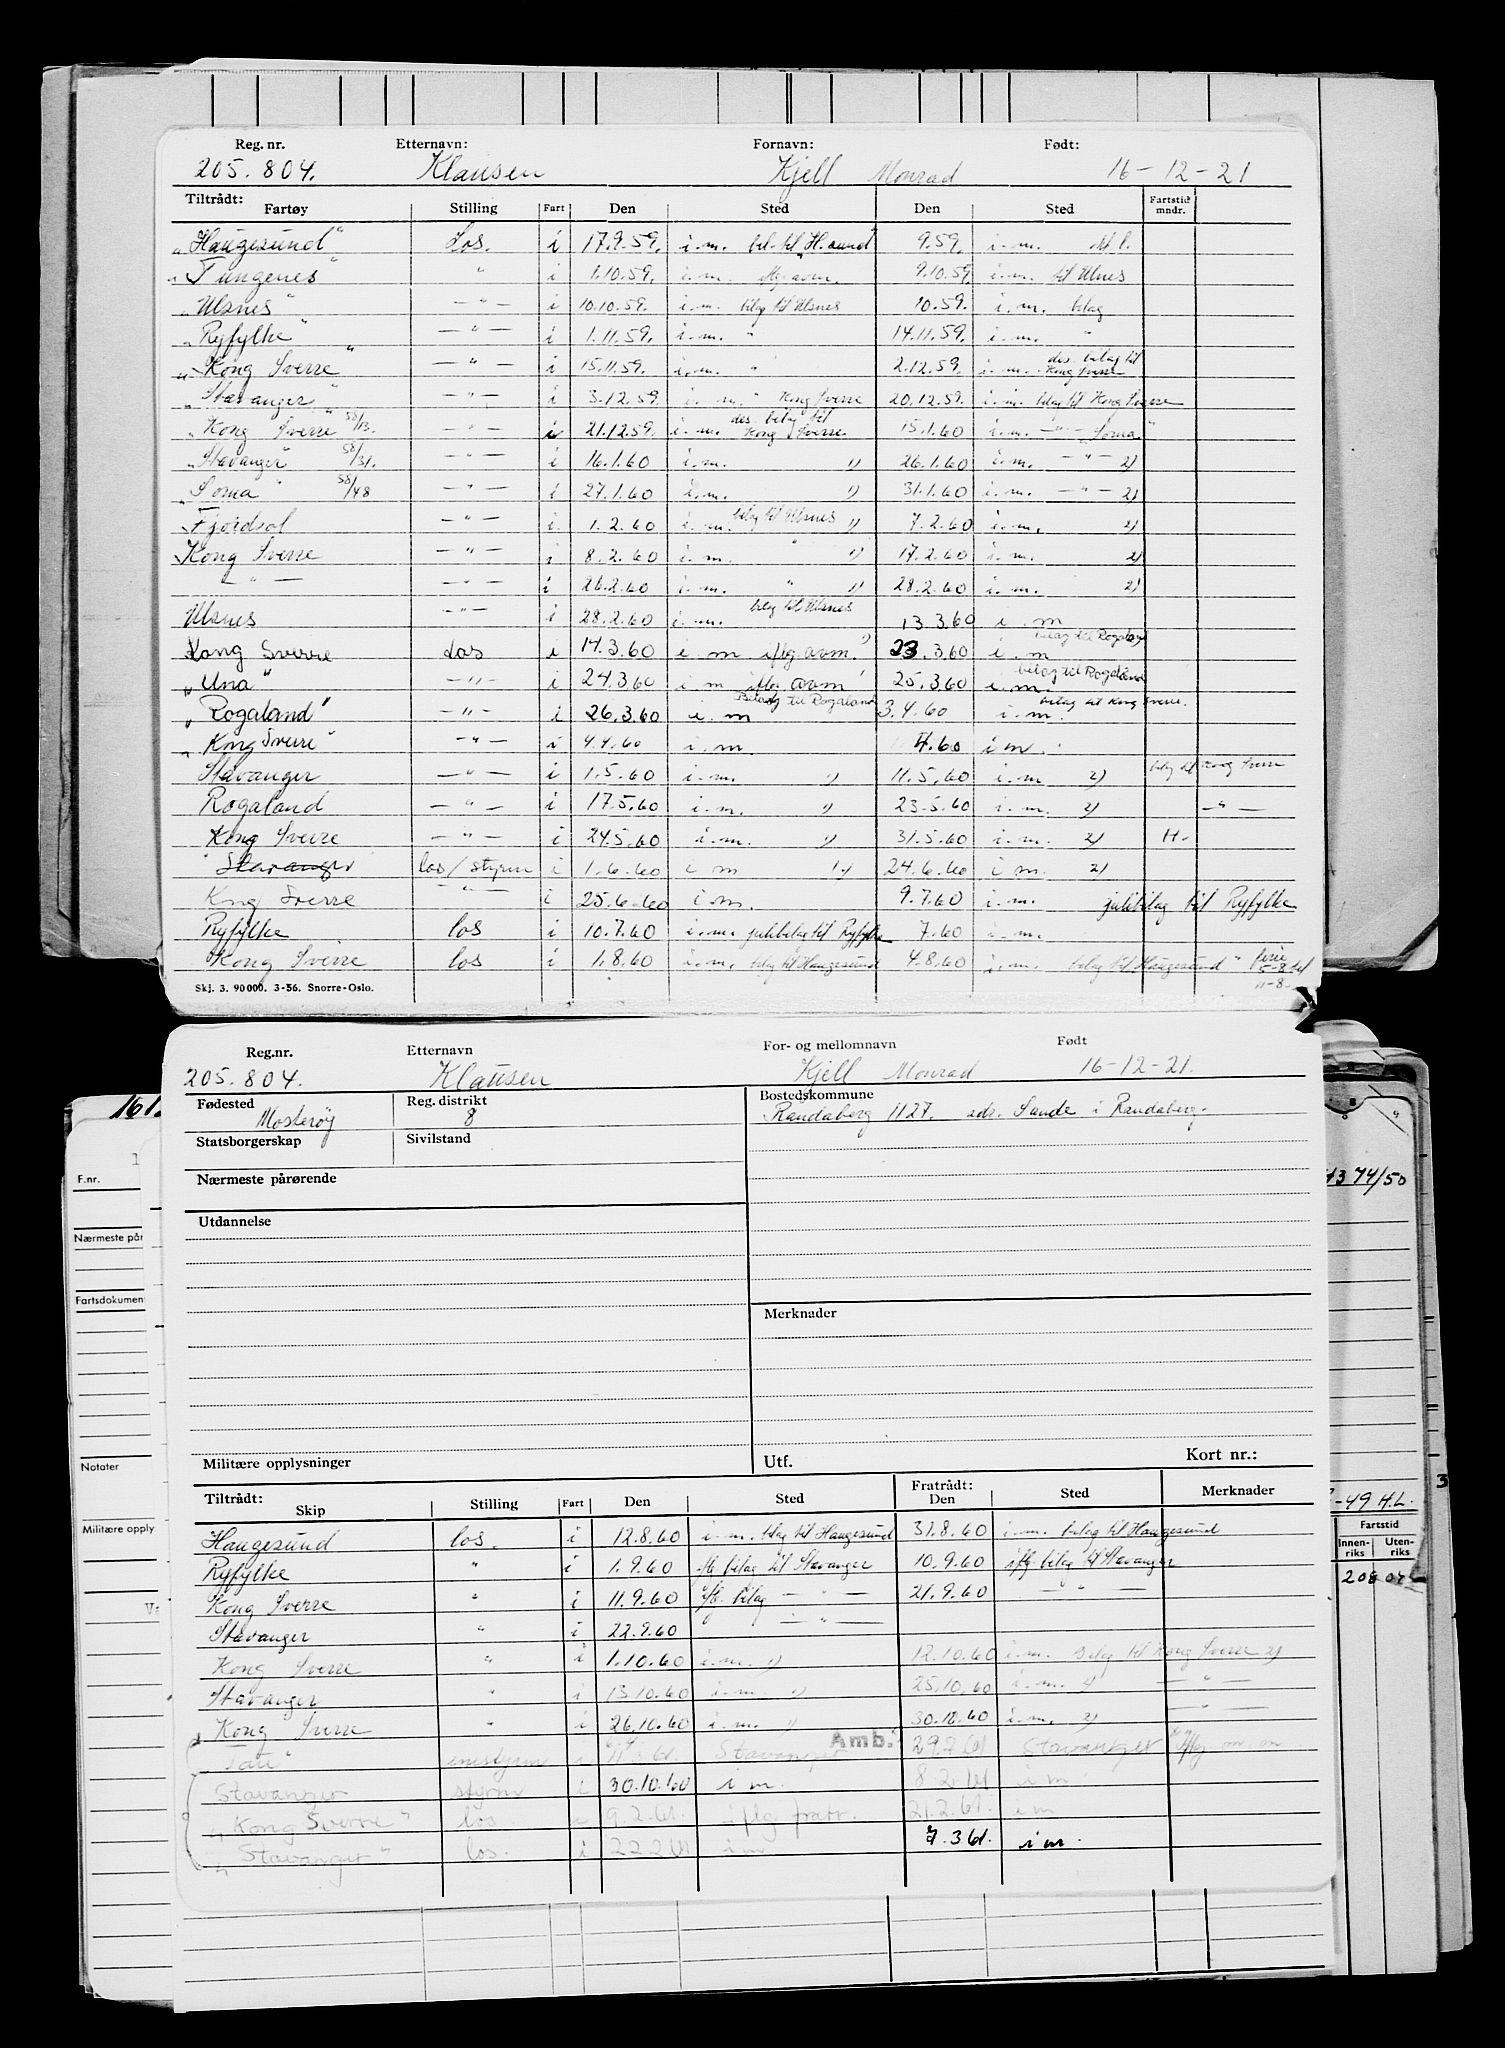 Reg. nr. Etternavn: Fornavn: Født:
205.804. Klausen Kjell Monrad 16-12-21
Tiltrådt: Fartstid
Fartøy Stilling Fart Den Sted Den Sted mndr.
"Haugesund" Los. i 17.9.59. i.m. bel. til "H.sund" 9.59. i.m.
"Tungenes" " i 1.10.59. i.m. 9.10.59. i.m. til Ulsnes
"Ulsnes" —"— i 10.10.59. i.m. bilag til Ulsnes 10.59. i.m. bilag
"Ryfylke" —"— i 1.11.59. i.m. " 14.11.59. i.m. "
"Kong Sverre" —"— i 15.11.59. i.m. " 2.12.59. i.m. des. bilag til Kong Sverre
"Stavanger" —"— i 3.12.59. i.m. " Kong Sverre 20.12.59. i.m. bilag til Kong Sverre
"Kong Sverre" 58/13. —"— i 21.12.59. i.m. des. bilag til Kong Sverre 15.1.60 i.m. —"— "Soma"
"Stavanger" 58/31. —"— i 16.1.60 i.m. 1) 26.1.60 i.m. —"— 2)
"Soma" 58/48 —"— i 27.1.60 i.m. 1) 31.1.60 i.m. —"— 2)
Fjordsol —"— i. 1.2.60 i.m. bilag til Ulsnes 1) 7.2.60 i.m. 2)
Kong Sverre —"— i 8.2.60 i.m. " 1) 17.2.60 i.m. 2)
—"— —"— i 26.2.60 i.m. " 1) 28.2.60 i.m. 2)
Ulsnes —"— i 28.2.60 i.m. bilag til Ulsnes 13.3.60 i.m
Kong Sverre Los i 14.3.60 i m iflg. avm. 1) 23.3.60 i.m bilag til Rogaland
"Una" —"— i 24.3.60 i.m iflg. avm 25.3.60 i.m. bilag til Rogaland
"Rogaland" —"— i 26.3.60 i.m Bilag til Rogaland 3.4.60 i.m. bilag til Kong Sverre.
"Kong Sverre" —"— i 4.4.60 i.m. 4.60 i m.
Stavanger —"— i 1.5.60 i.m. 1) 11.5.60 i.m 2) bilag til Kong Sverre
Rogaland —"— i 17.5.60 i.m. 1) 23.5.60 i.m. 2) —"—
Kong Sverre —"— i 24.5.60 i.m. 1) 31.5.60 i.m. 2)
Stavanger los/styrm i 1.6.60 i m 1) 24.6.60 i m. 2)
Kong Sverre —"— i 25.6.60 i.m. 9.7.60 i.m. julibilag til Ryfylke
Ryfylke los i 10.7.60 i.m. julibilag til Ryfylke 7.60 i.m.
Kong Sverre los i 1.8.60 i.m. bilag til Haugesund 4.8.60 i.m. bilag til Haugesund " ferie 5-8 til 11-8.
Skj. 3. 90 000. 3-56. Snorre-Oslo.
Reg.nr. Etternavn For- og mellomnavn Født
205.804. Klausen Kjell Monrad 16-12-21.
Fødested Reg. distrikt Bostedskommune
Mosterøy 8 Randaberg 1127. adr. Sande i Randaberg.
Statsborgerskap Sivilstand
Nærmeste pårørende
Utdannelse
Merknader
Militære opplysninger Utf. Kort nr.:
Tiltrådt: Fratrådt:
Skip Stilling Fart Den Sted Den Sted Merknader
Haugesund los. i 12.8.60 i.m. bilag til Haugesund 31.8.60 i.m. bilag til Haugesund
Ryfylke " i 1.9.60 iflg bilag til Stavanger 10.9.60 iflg. bilag til Stavanger
Kong Sverre " i 11.9.60 iflg. bilag —"— 21.9.60 —"—
Stavanger " i 22.9.60 " —"—
Kong Sverre " i 1.10.60 i.m. 1) 12.10.60 i.m. Bilag til Kong Sverre 2)
Stavanger " i 13.10.60 i.m. 1) 25.10.60 i.m. 2) —"—
"Kong Sverre " i 26.10.60 i.m. 1) 30.10.60 i.m. 2) —"—
Stavanger Amb. 29.7.61 Stavanger
Stavanger styrm i 30.10.60 i m. 8.2.61 i m
"Kong Sverre" los i 9.2.61. iflg fratr. 21.2.61. i m
"Stavanger" los. i 22.2.61 i m 7.3.61. i m.
F.nr.
Nærmeste pår
Fartsdokumen
Notater
Militære opply
4374/50
-49 H.L.
Fartstid
Innenriks Utenriks
3